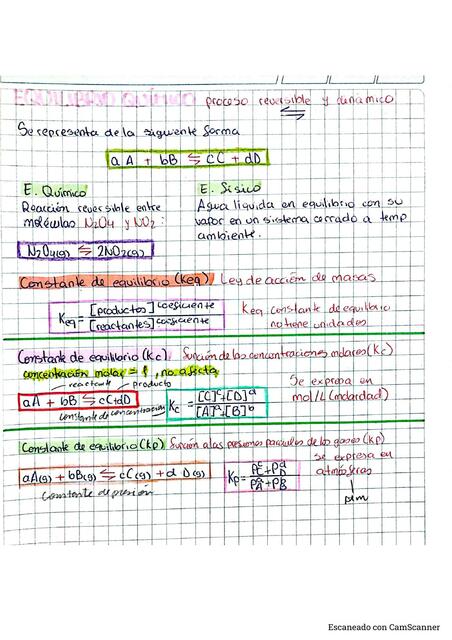 EQUILIBRIO QUÍMICO proceso reversible y dinamico
⇌
Se representa de la siguiente forma
aA + bB ⇌ cC + dD
E. Químico
Reacción reversible entre
moléculas N₂O₄ y NO₂:
N₂O₄(g) ⇌ 2NO₂(g)
E. Físico
Agua líquida en equilibrio con su
vapor en un sistema cerrado a temp
ambiente.
Constante de equilibrio (Keq) Ley de acción de masas
Keq = [productos]coeficiente / [reactantes]coeficiente
Keq constante de equilibrio
no tiene unidades
Constante de equilibrio (Kc) función de las concentraciones molares (Kc)
concentración molar = 1, no afecta
reactante producto
aA + bB ⇌ cC + dD
constante de concentración
Kc = [C]ᶜ+[D]ᵈ / [A]ᵃ+[B]ᵇ
Se expresa en
mol/L (molaridad)
Constante de equilibrio (Kp) función a las presiones parciales de los gases (Kp)
aA(g) + bB(g) ⇌ cC(g) + dD(g)
constante de presión
Kp =
se expresa en
atmósferas
Escaneado con CamScanner